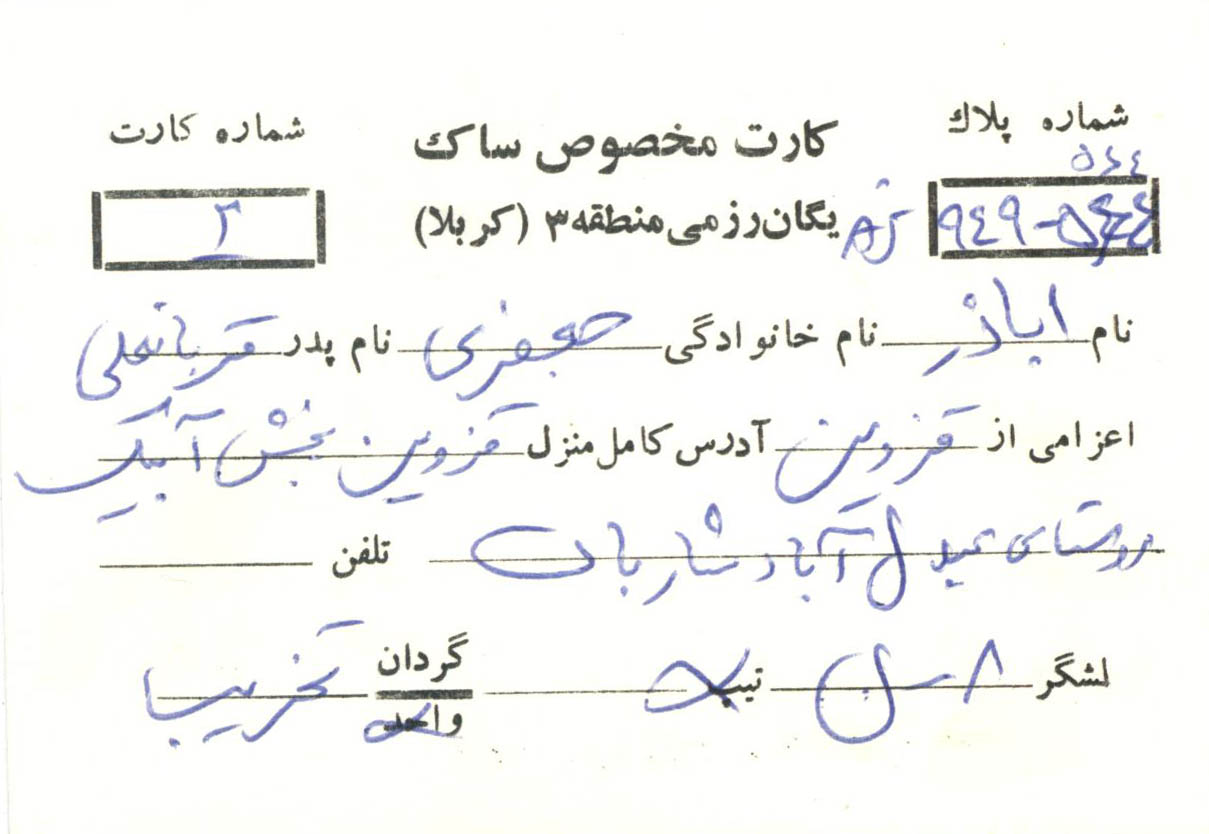 شماره پلاك کارت مخصوص ساک شماره کارت
٥٤٤
AJ یگان رزمی منطقه ۳ (کربلا) ۳
نام اباذر نام خانوادگی جعفری نام پدر قربانعلی
اعزامی از قزوین آدرس کامل منزل قزوین بخش آبیک
روستای عبدل آباد تلفن
لشگر ۸ - ل تیپ گردان تخریب
واحد